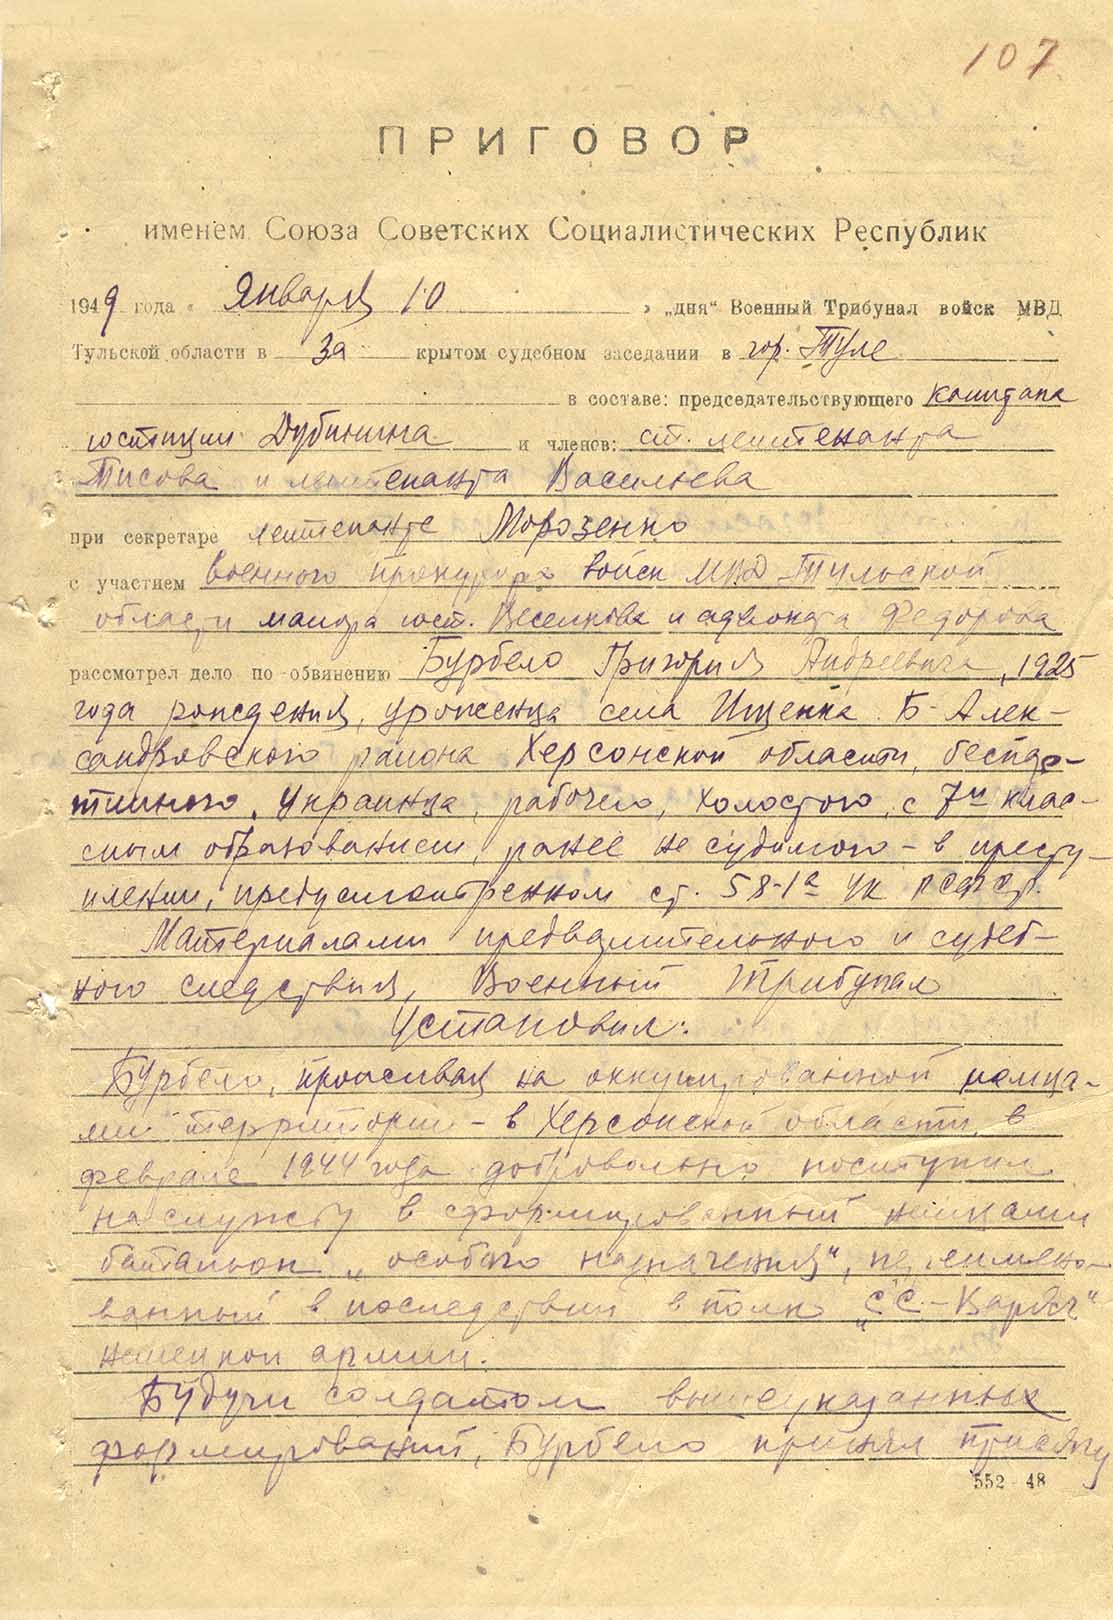 107
ПРИГОВОР
именем Союза Советских Социалистических Республик
1949 года « Января 10 » „дня“ Военный Трибунал войск МВД
Тульской области в за крытом судебном заседании в гор. Туле
в составе: председательствующего капитана
юстиции Дубинина и членов: ст. лейтенанта
Тисова и лейтенанта Васильева
при секретаре лейтенанте Морозенко
с участием военного прокурора войск МВД Тульской
области майора юст. Веселкова и адвоката Федорова
рассмотрел дело по обвинению Бурбело Григория Андреевича, 1925
года рождения, уроженца села Ищенка Б-Алек-
сандровского района Херсонской области, беспар-
тийного, украинца, рабочего, холостого, с 7ю клас-
сным образованием, ранее не судимого - в престу-
плении, предусмотренном ст. 58-1а УК РСФСР.
Материалами предварительного и судеб-
ного следствия, Военный Трибунал
Установил:
Бурбело, проживая на оккупированной немца-
ми территории - в Херсонской области, в
феврале 1944 года добровольно поступил
на службу в сформированный немцами
батальон „особого назначения“, переимено-
ванный в последствии в полк „СС-Варяг“
немецкой армии.
Будучи солдатом вышеуказанных
формирований, Бурбело принял присягу
552-48